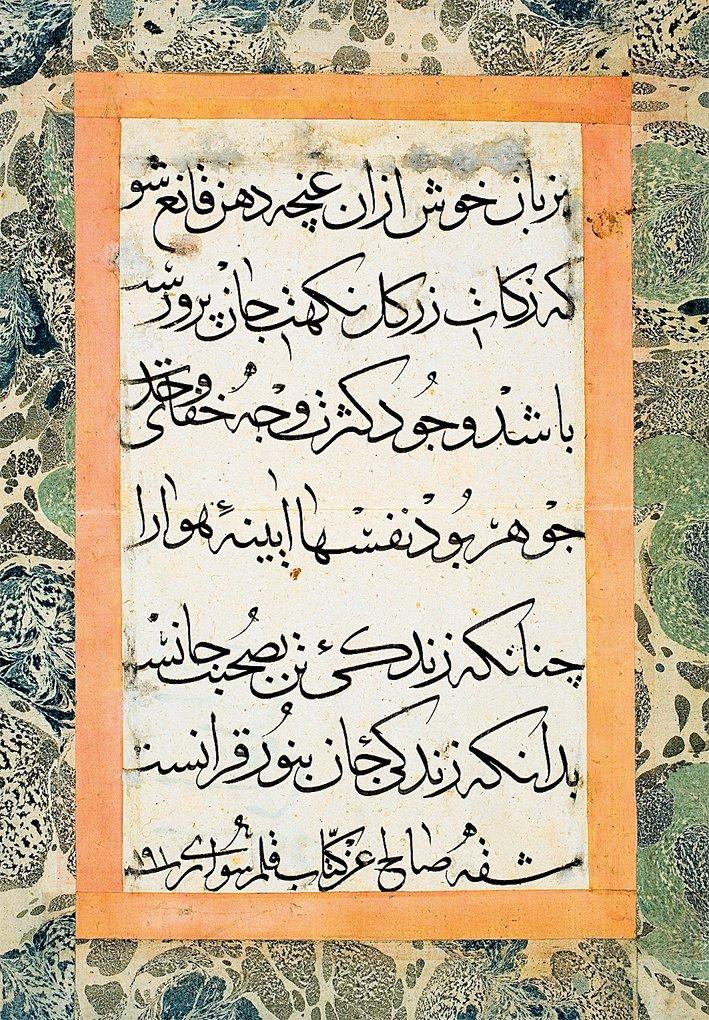 بزبان خوش ازان غنچه دهن قانع شو
که زکات زر کل نکهت جان پرور
باشد وجود کثرت وجه خفاء
جوهر بود نفسها ایینهٔ هوارا
چنانکه زندکیٔ تن بصحبت جانست
بدانکه زندکی جان بنور قرانست
مشقه صالح عن کتاب قلم سوری